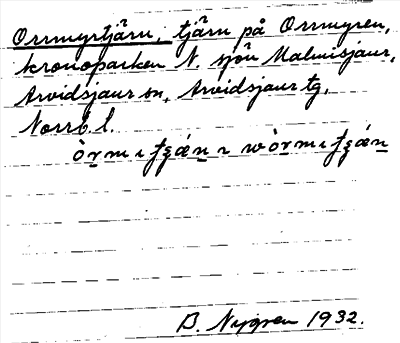 Orrmyrtjärn, tjärn på Orrmyren,
kronoparken N. sjön Malmisjaur,
Arvidsjaur sn, Arvidsjaur tg,
Norrb. l.
B. Nygren 1932.